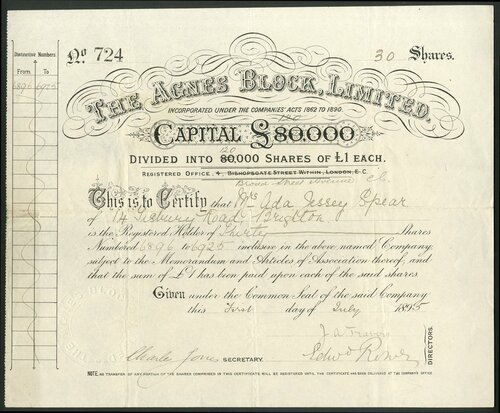 Distinctive Numbers
From To
6896 6925
No 724
30 Shares.
THE AGNES BLOCK, LIMITED.
INCORPORATED UNDER THE COMPANIES' ACTS 1862 TO 1890.
120
CAPITAL £80.000
120
DIVIDED INTO 80.000 SHARES OF £1 EACH.
REGISTERED OFFICE, 4, BISHOPSGATE STREET WITHIN, LONDON, E.C.
Broad Street Avenue E.C.
This is to Certify that Mrs Ada Jessey Spear
of 14 Tisbury Road Brighton
is the Registered Holder of Thirty Shares
Numbered 6896 to 6925 inclusive in the above named Company,
subject to the Memorandum and Articles of Association thereof, and
that the sum of £1 has been paid upon each of the said shares.
Given under the Common Seal of the said Company
this First day of July 1895
Charles Jones SECRETARY.
DIRECTORS.
NOTE, NO TRANSFER OF ANY PORTION OF THE SHARES COMPRISED IN THIS CERTIFICATE WILL BE REGISTERED UNTIL THE CERTIFICATE HAS BEEN DELIVERED AT THE COMPANY'S OFFICE